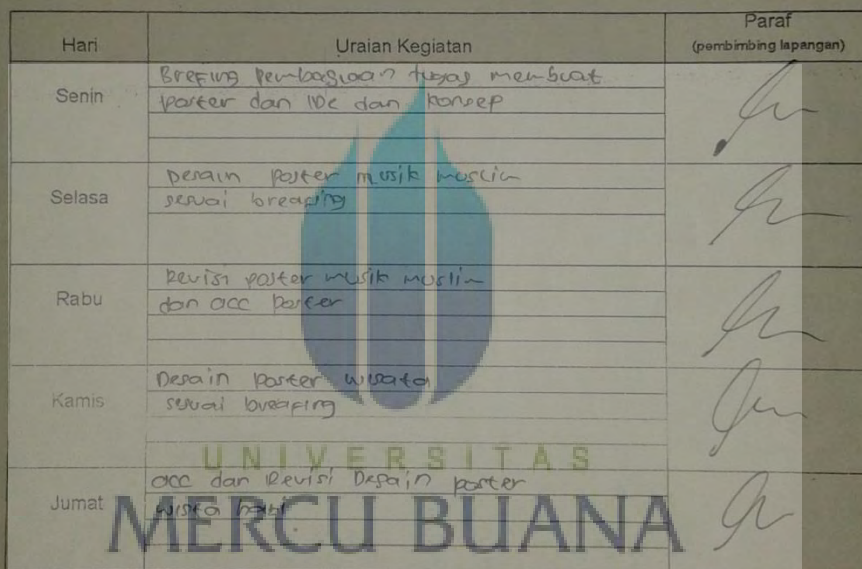 Hari Uraian Kegiatan Paraf
(pembimbing lapangan)
Senin
Brefing pembagiaan tugas membuat
poster dan IDe dan konsep
Selasa
Desain poster musik muslim
sesuai breafing
Rabu
Revisi poster musik muslim
dan acc poster
Kamis
Desain poster wisata
sesuai breafing
UNIVERSITAS
Jumat
acc dan Revisi Desain poster
MERCU BUANA